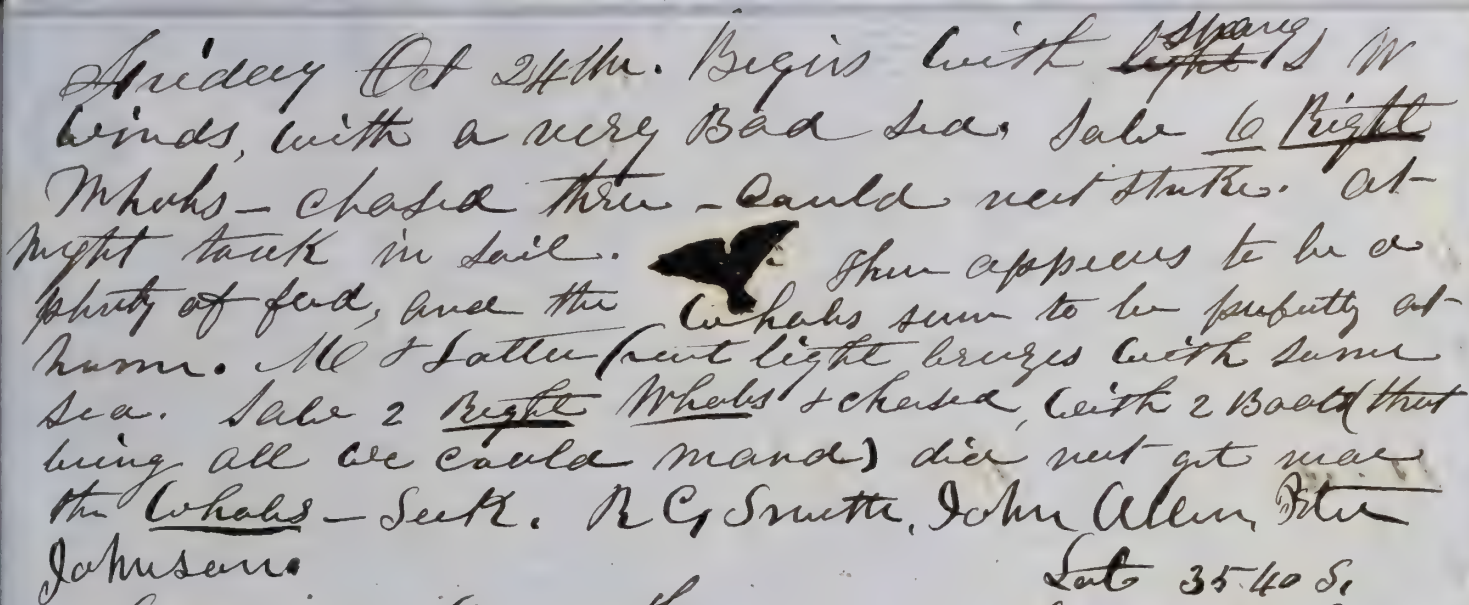 Friday Oct 24th. Begins with strong S W
winds, with a very Bad sea. Saw 6 Right
Whales – chased three – Could not strike. at
Night took in sail. There appears to be a
plenty of feed, and the Whales seem to be perfectly at
home. M & Latter part light breezes with some
sea. Saw 2 Right Whales & chased, with 2 Boats (that
being all we could mand) did not get near
the Whales – Sick. R G Smith, John Allen, Peter
Johnson. Lat 35.40 S.